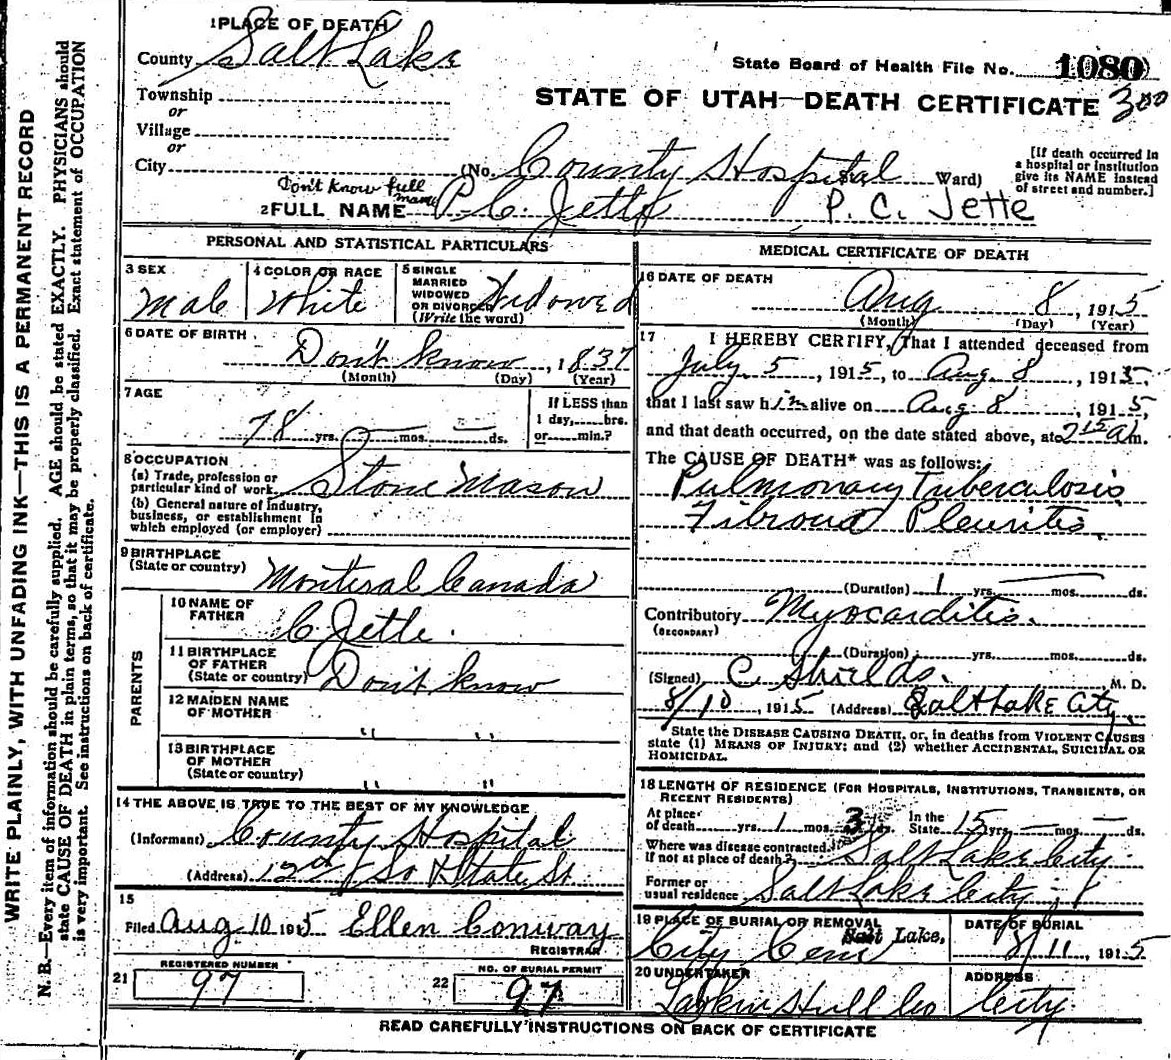 WRITE PLAINLY, WITH UNFADING INK—THIS IS A PERMANENT RECORD
N. B.—Every item of information should be carefully supplied. AGE should be stated EXACTLY. PHYSICIANS should
state CAUSE OF DEATH in plain terms, so that it may be properly classified. Exact statement of OCCUPATION
is very important. See instructions on back of certificate.
1 PLACE OF DEATH
County Salt Lake
State Board of Health File No. 1080
Township
or
Village
or
City
STATE OF UTAH—DEATH CERTIFICATE 300
(No. County Hospital St. Ward)
[If death occurred in
a hospital or institution
give its NAME instead
of street and number.]
Don't know full
name
2 FULL NAME P. C. Jette P. C. Jette
PERSONAL AND STATISTICAL PARTICULARS
3 SEX
Male
4 COLOR OR RACE
White
5 SINGLE
MARRIED
WIDOWED
OR DIVORCED
(Write the word)
Widowed
6 DATE OF BIRTH
Don't know, 1837
(Month) (Day) (Year)
7 AGE
78 yrs. — mos. — ds.
If LESS than
1 day, hrs.
or min.?
8 OCCUPATION
(a) Trade, profession or
particular kind of work Stone Mason
(b) General nature of industry,
business, or establishment in
which employed (or employer)
9 BIRTHPLACE
(State or country) Montreal Canada
PARENTS
10 NAME OF
FATHER
C. Jette.
11 BIRTHPLACE
OF FATHER
(State or country) Don't know
12 MAIDEN NAME
OF MOTHER
" "
13 BIRTHPLACE
OF MOTHER
(State or country)
" "
14 THE ABOVE IS TRUE TO THE BEST OF MY KNOWLEDGE
(Informant) County Hospital
(Address) 12th So & State St.
15
Filed Aug 10 1915 Ellen Conway
REGISTRAR
21 REGISTERED NUMBER
97
22 NO. OF BURIAL PERMIT
97
MEDICAL CERTIFICATE OF DEATH
16 DATE OF DEATH
Aug 8, 1915
(Month) (Day) (Year)
17 I HEREBY CERTIFY, That I attended deceased from
July 5, 1915, to Aug. 8, 1915,
that I last saw him alive on Aug 8, 1915,
and that death occurred, on the date stated above, at 715 a m.
The CAUSE OF DEATH* was as follows:
Pulmonary Tuberculosis
Fibroid Pleuritis.
(Duration) 1 yrs. mos. ds.
Contributory Myocarditis.
(SECONDARY)
(Duration) yrs. mos. ds.
(Signed) C. Shields. M. D.
8/10, 1915 (Address) Salt Lake City.
State the DISEASE CAUSING DEATH, or, in deaths from VIOLENT CAUSES
state (1) MEANS OF INJURY; and (2) whether ACCIDENTAL, SUICIDAL OR
HOMICIDAL.
18 LENGTH OF RESIDENCE (FOR HOSPITALS, INSTITUTIONS, TRANSIENTS, OR
RECENT RESIDENTS)
At place
of death yrs. 1 mos. 3 ds. In the
State 15 yrs. — mos. — ds.
Where was disease contracted,
if not at place of death? Salt Lake City.
Former or
usual residence Salt Lake City
19 PLACE OF BURIAL OR REMOVAL
City Cem Salt Lake,
DATE OF BURIAL
8/11, 1915
20 UNDERTAKER
Larkin Hull Co
ADDRESS
City
READ CAREFULLY INSTRUCTIONS ON BACK OF CERTIFICATE